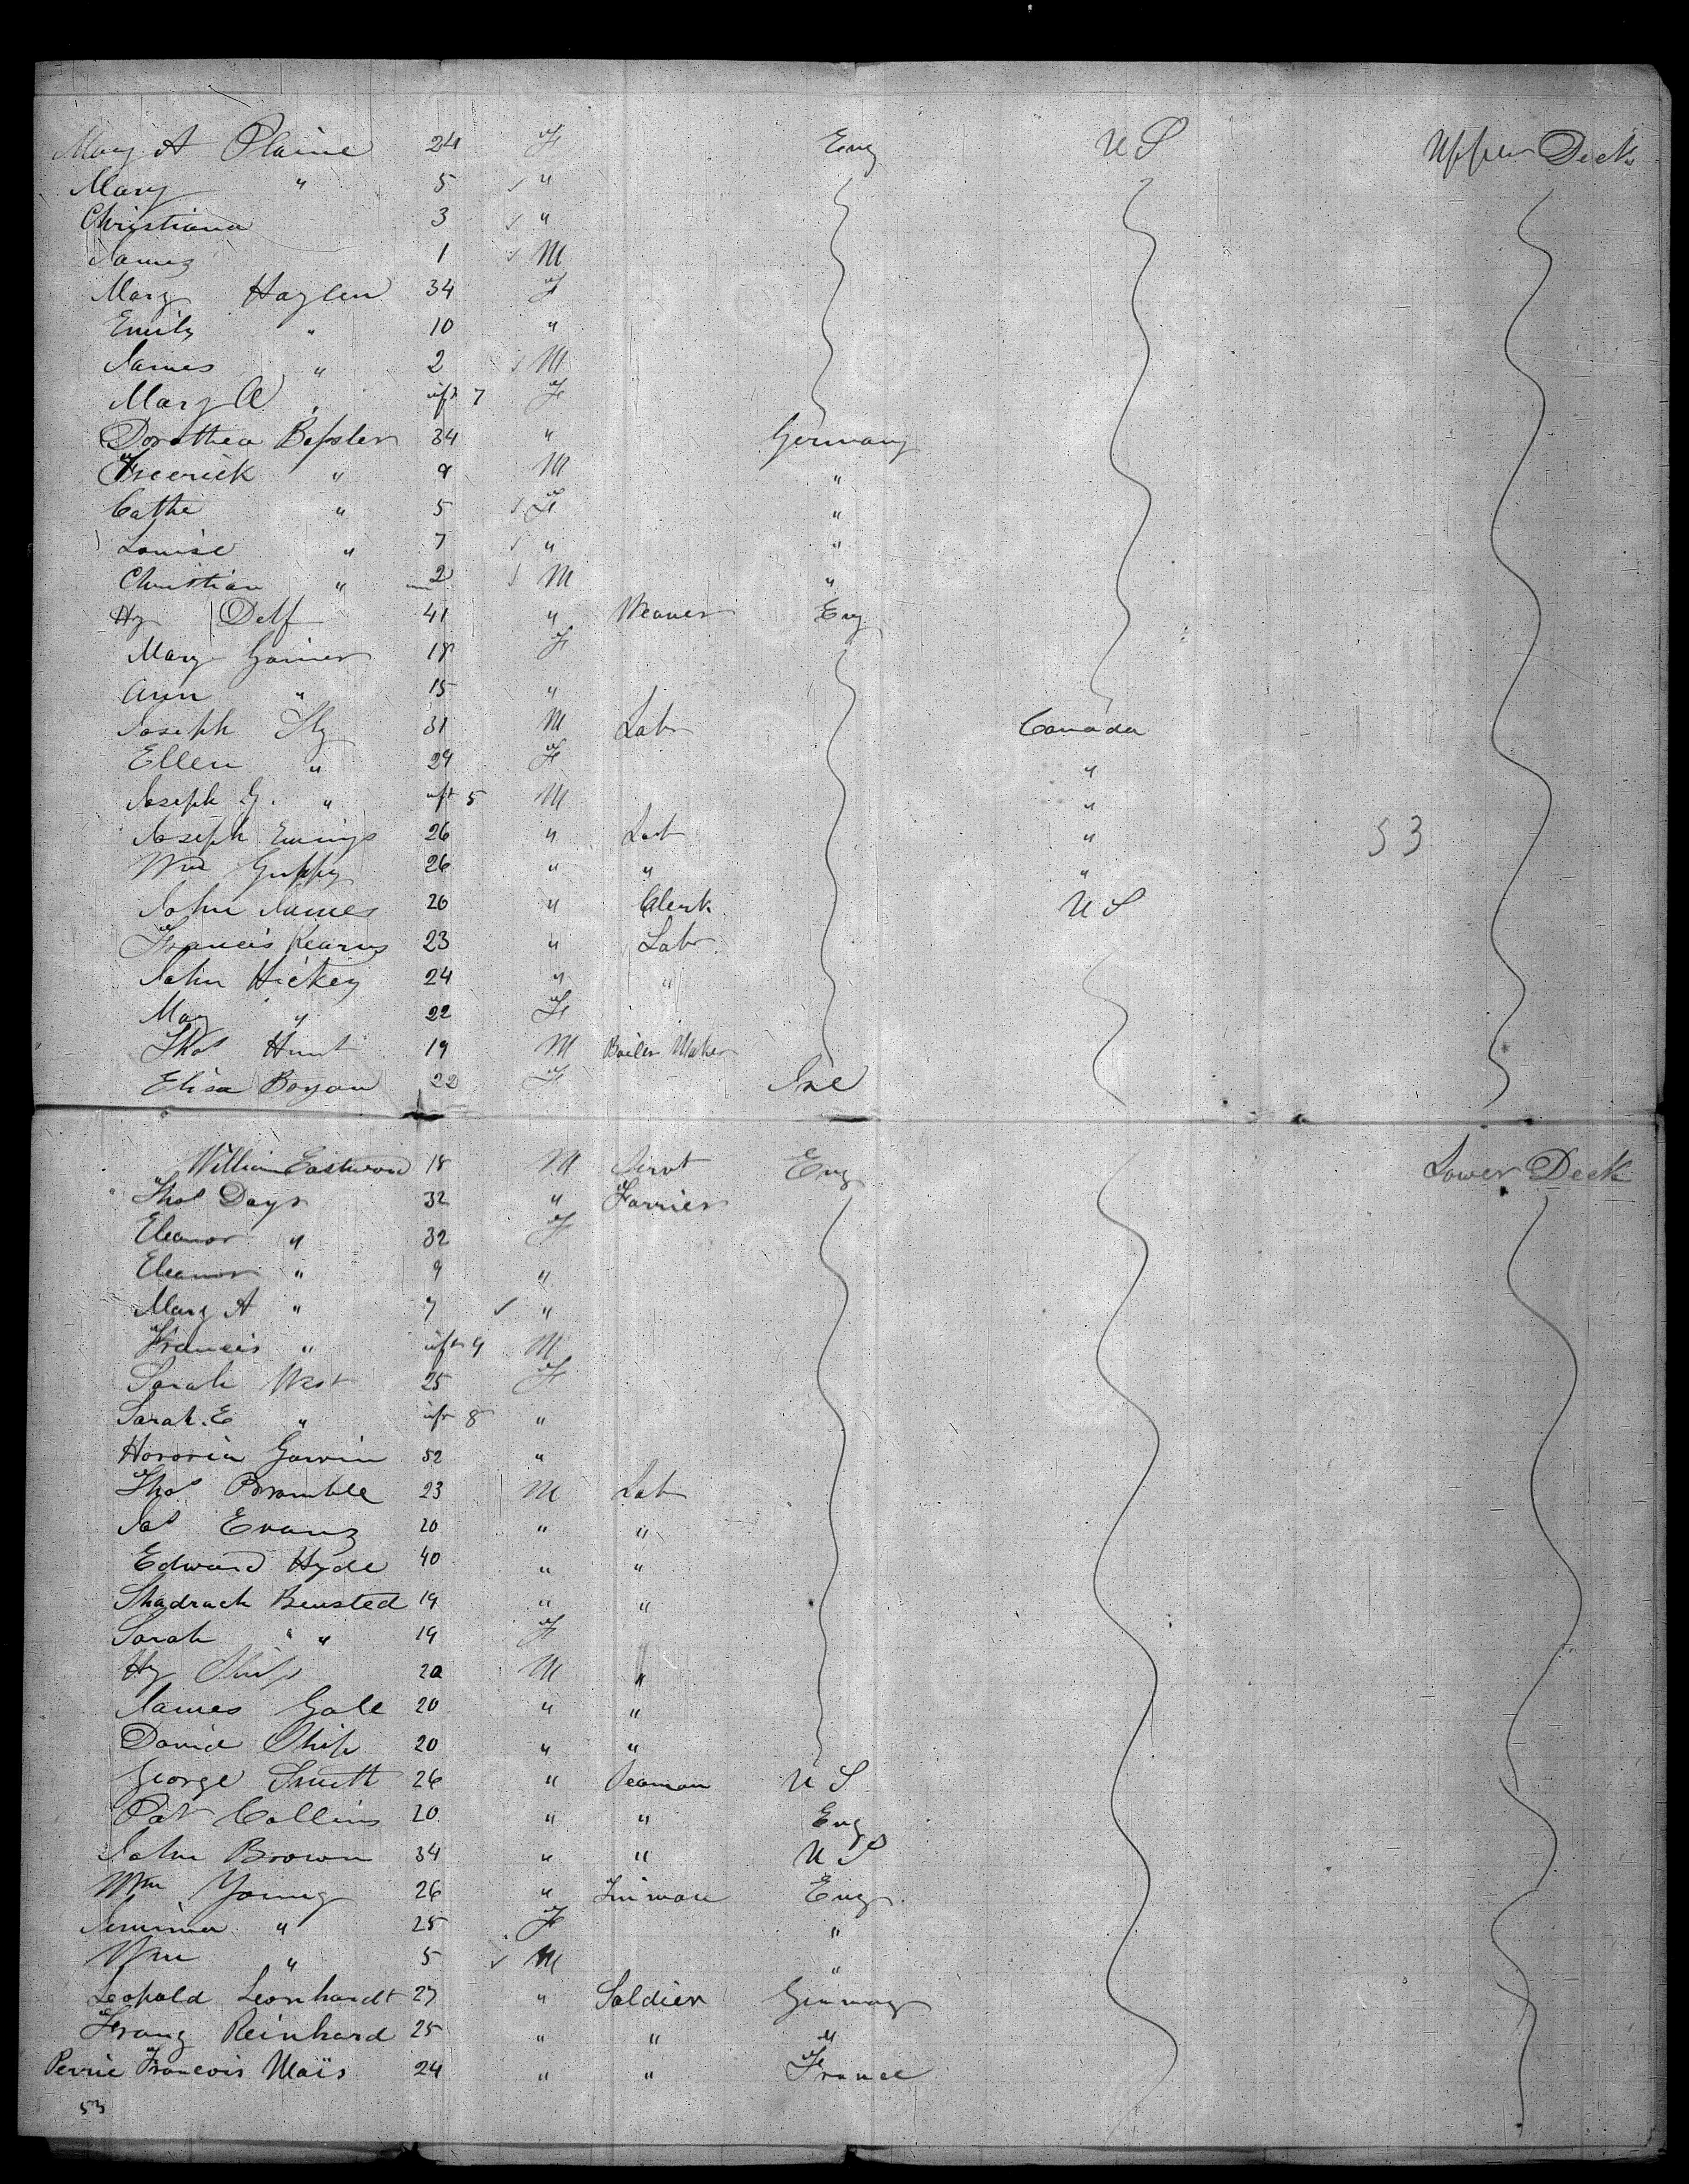 Mary A Plaine 24 F Eng U S Upper Deck
Mary " 5 ✓ "
Christiana 3 ✓ "
James 1 ✓ M
Mary Haylen 34 F
Emily " 10 "
James " 2 ✓ M
Mary A " inft 7 F
Dorothea Bessler 34 " Germany
Freerick " 9 M "
Cathe " 5 ✓ F "
Louise " 7 ✓ " "
Christian " 2 ✓ M "
Hy Delf 41 " Weaver Eng
Mary Gainer 18 F
Ann " 15 "
Joseph Sly 31 M Labr Canada
Ellen " 29 F "
Joseph G. " inft 5 M "
Joseph Emings 26 " Lab "
Wm Guppy 26 " " "
John James 26 " Clerk U S
Francis Kearns 23 " Labr
John Hickey 24 " "
Mary " 22 F
Thos Hunt 19 M Boiler Maker
Elisa Bogan 22 F Ire
53
William Eastwood 18 M Servt Eng Lower Deck
Thos Days 32 " Farrier
Eleanor " 32 F
Eleanor " 9 "
Mary A " 7 ✓ "
Francis " inft 9 M
Sarah West 25 F
Sarah. E " inft 8 "
Honoria Garvin 52 "
Thos Bramble 23 M Lab
Jas Evans 20 " "
Edward Hyde 40 " "
Shadrach Bensted 19 " "
Sarah " " 19 F
Hy Ship 20 M "
James Gale 20 " "
David Ship 20 " "
George Smith 26 " Seaman U S
Pat Collins 20 " " Eng
John Brown 34 " " U S
Wm Young 26 " Tinman Eng
Jemima " 25 F "
Wm " 5 ✓ M "
Leopold Leonhardt 27 " Soldier Germany
Franz Reinhard 25 " " "
Perrie Francois Maïs 24 " " France
53